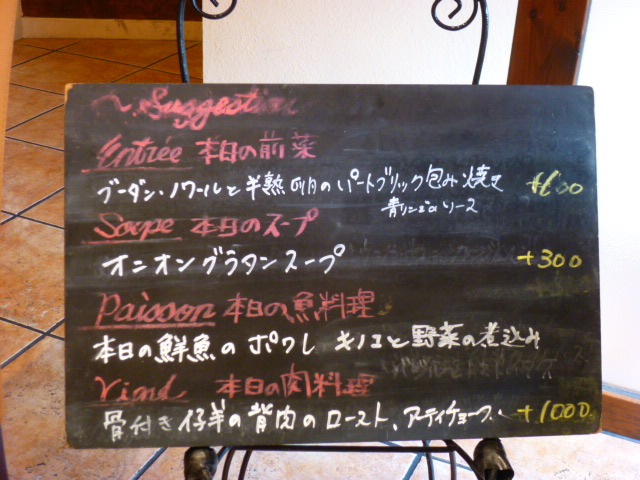 Suggestion
Entrée 本日の前菜
ブーダン・ノワールと半熟卵のパートブリック包み焼き +600
青リンゴのソース
Soupe 本日のスープ
オニオングラタンスープ +300
Poisson 本日の魚料理
本日の鮮魚のポワレ キノコと野菜の煮込み
Viand 本日の肉料理
骨付き仔羊の背肉のロースト、アーティチョーク +1000